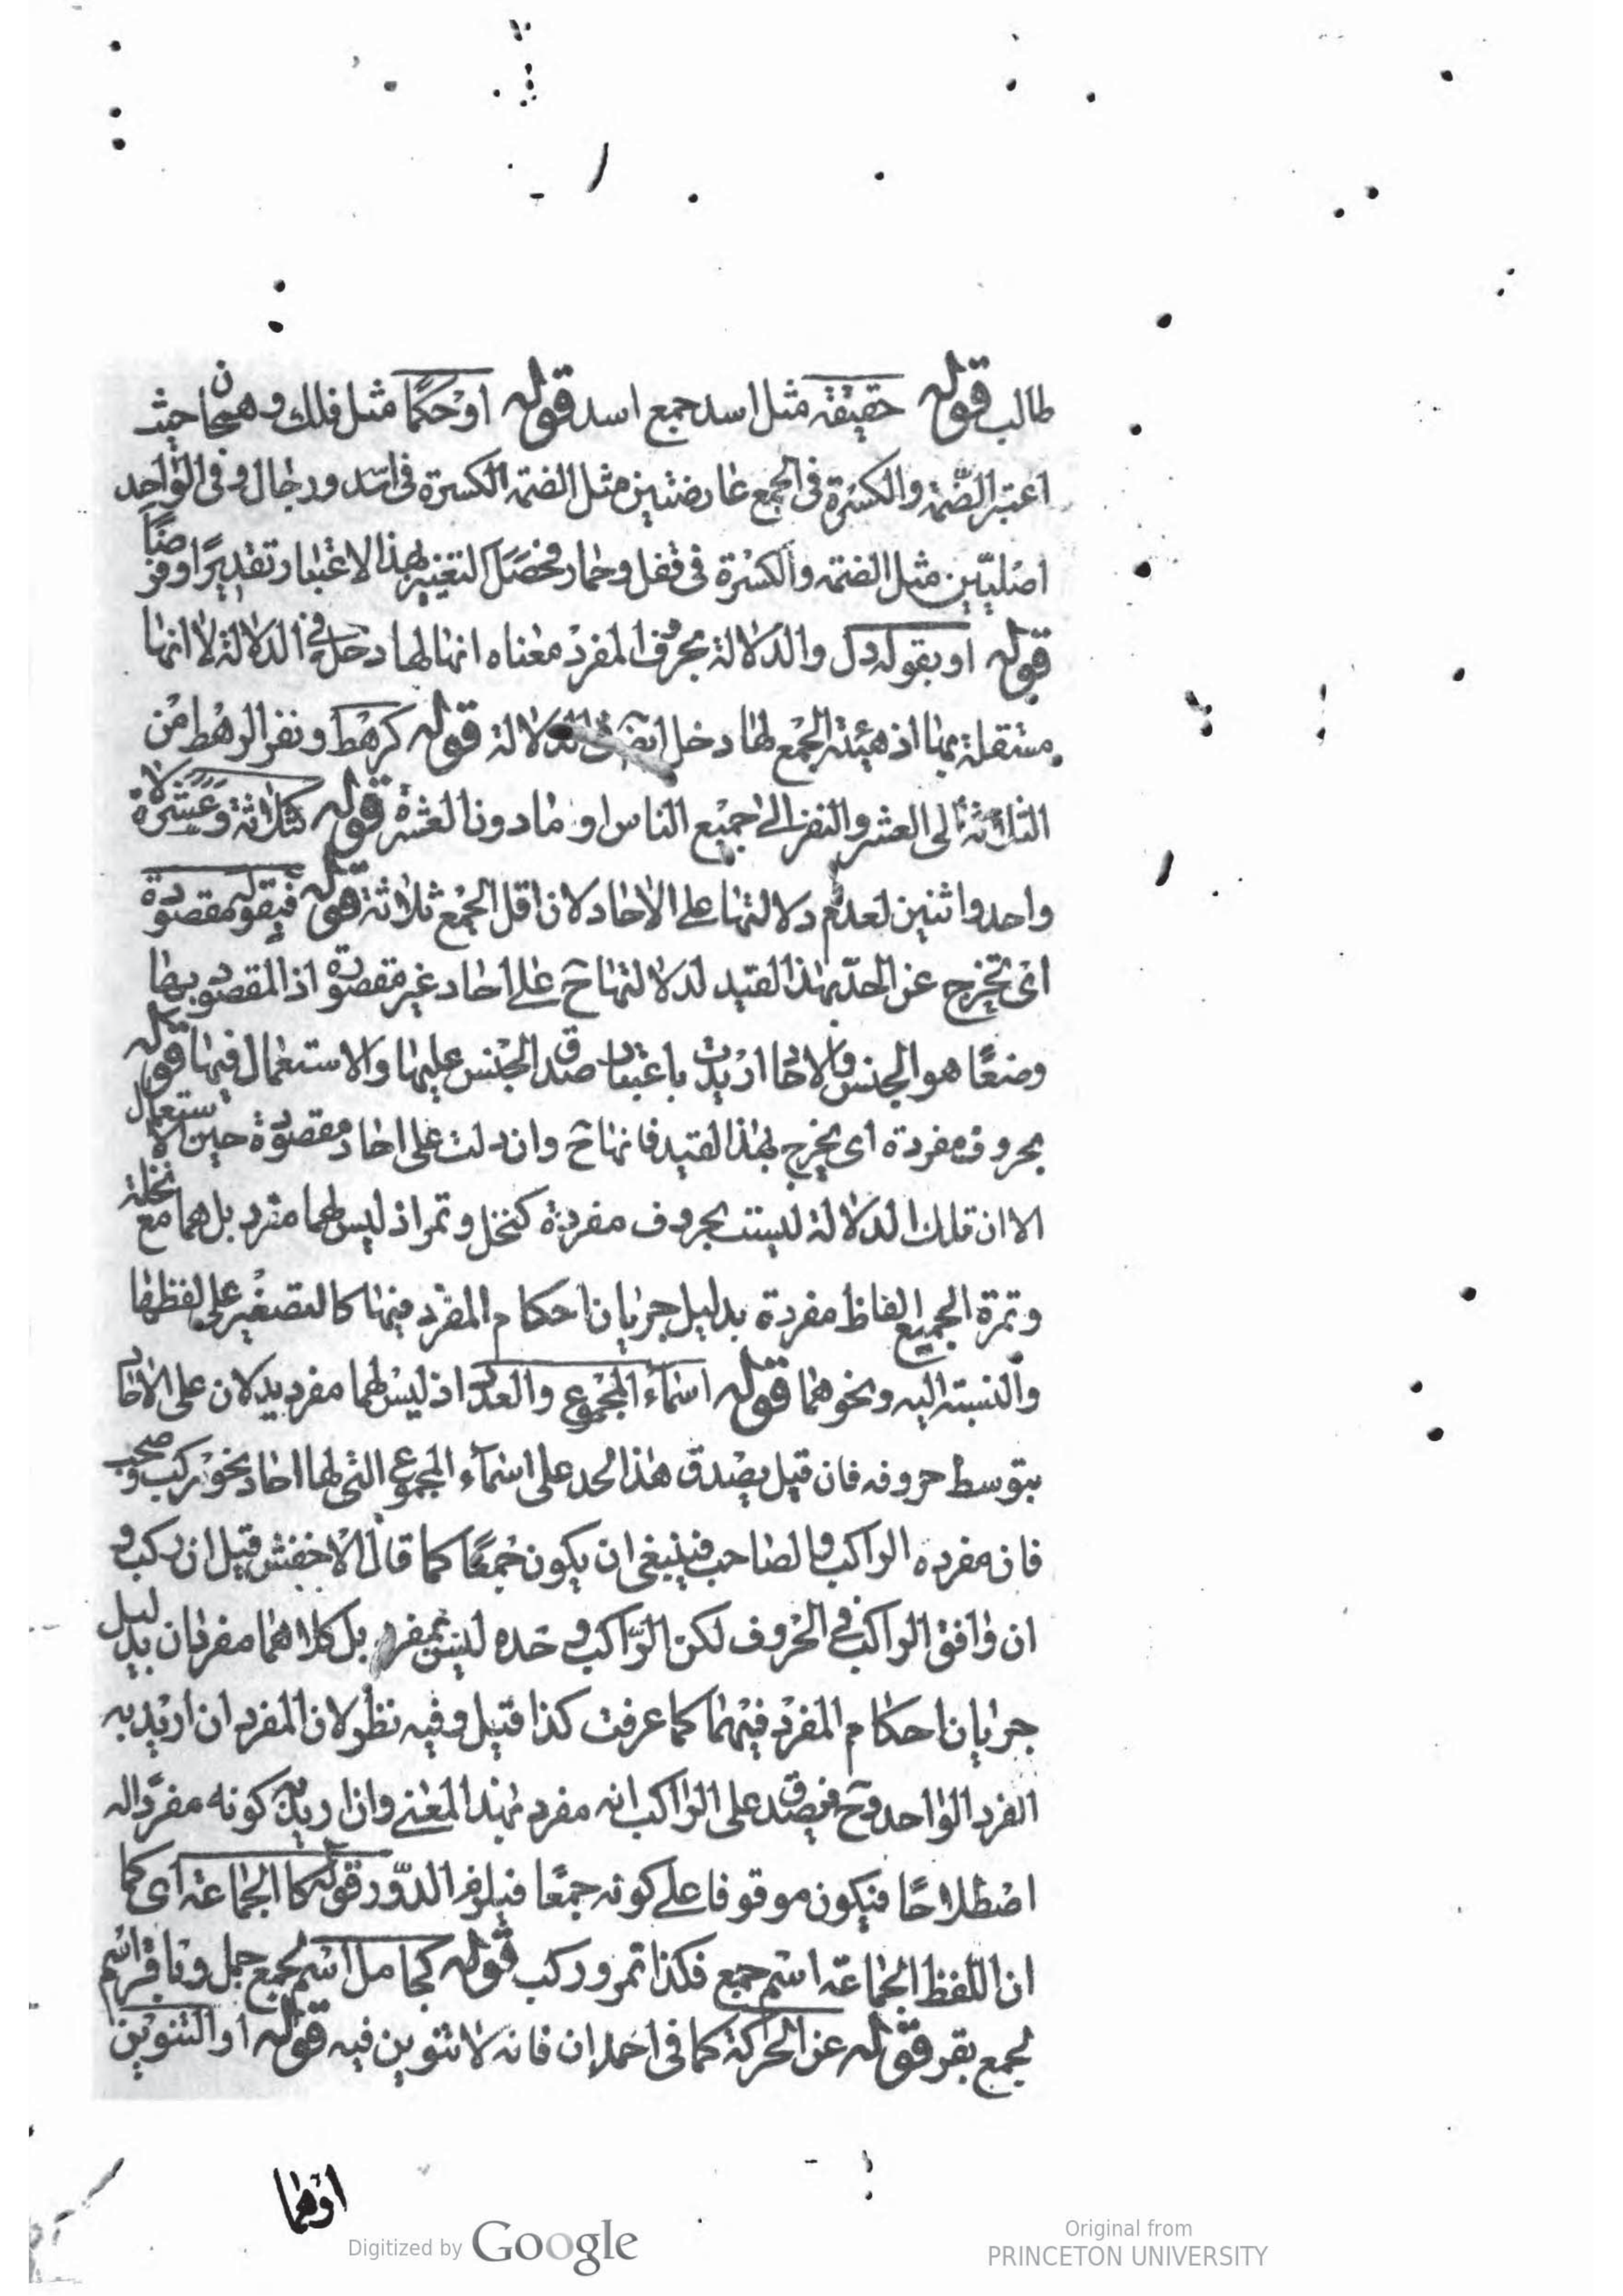 طالب قوله حقيقة مثل اسد جمع اسد قوله او حكمًا مثل فلك وهجان حيث
اعتبر الضّمة والكسرة فى الجمع عارضتين مثل الضمة الكسرة فى اسد ورجال وفى الواحد
اصليّتين مثل الضمة والكسرة فى قفل وحمار فحصل التغيير بهذا الاعتبار تقديرًا وفرضًا
قوله او بقوله دل والدلالة بحروف المفرد معناه انها لها دخل فى الدلالة لا انها
مستقلة بها اذ هيئة الجمع لها دخل ايضا فى الدلالة قوله كرهط ونفر الرهط من
الثلاثة الى العشر والنفر الى جميع الناس او ما دون العشرة قوله كثلاثة وعشرة لا
واحد واثنين لعدم دلالتها على الاحاد لان اقل الجمع ثلاثة قوله فبقوله مقصودة
اى تخرج عن الحدّ بهذا القيد لدلالتها ح على احاد غير مقصودة اذ المقصود بها
وضعًا هو الجنس والاحاد اريدت باعتبار صدق الجنس عليها والاستعمال فيها قوله
بحروف مفردة اى يخرج بهذا القيد فانها ح وان دلت على احاد مقصودة حين الاستعمال
الا ان تلك الدلالة ليست بحروف مفردة كنخل وتمر اذ ليس لهما مفرد بل هما مع نخلة
وتمرة الجميع الفاظ مفردة بدليل جريان احكام المفرد فيها كالتصغير على لفظها
والنسبة اليه ونحوهما قوله اسماء المجموع والعدد اذ ليس لهما مفرد يدلان على الاحاد
بتوسط حروفه فان قيل يصدق هذا الحد على اسماء المجموع التى لها احاد نحو ركب وصحب
فان مفرده الراكب والصاحب فينبغى ان يكون جمعًا كما قال الاخفش قيل ان ركب و
ان وافق الراكب فى الحروف لكن الرّاكب وحده ليس بمفرد بل كلاهما مفردان بدليل
جريان احكام المفرد فيهما كما عرفت كذا قيل وفيه نظر لان المفرد ان اريد به
الفرد الواحد وح فيصدق على الراكب انه مفرد بهذا المعنى وان اريد به كونه مفردًا له
اصطلاحًا فيكون موقوفا على كونه جمعًا فيلزم الدّور قوله كا الجماعة اى كما
ان اللفظ الجماعة اسم جمع فكذا تمر وركب قوله كجامل اسم لجمع جمل وباقر اسم
لجمع بقر قوله عن الحركة كما فى احمدان فانه لا تنوين فيه قوله او التنوين
اوهما
Digitized by Google
Original from
PRINCETON UNIVERSITY